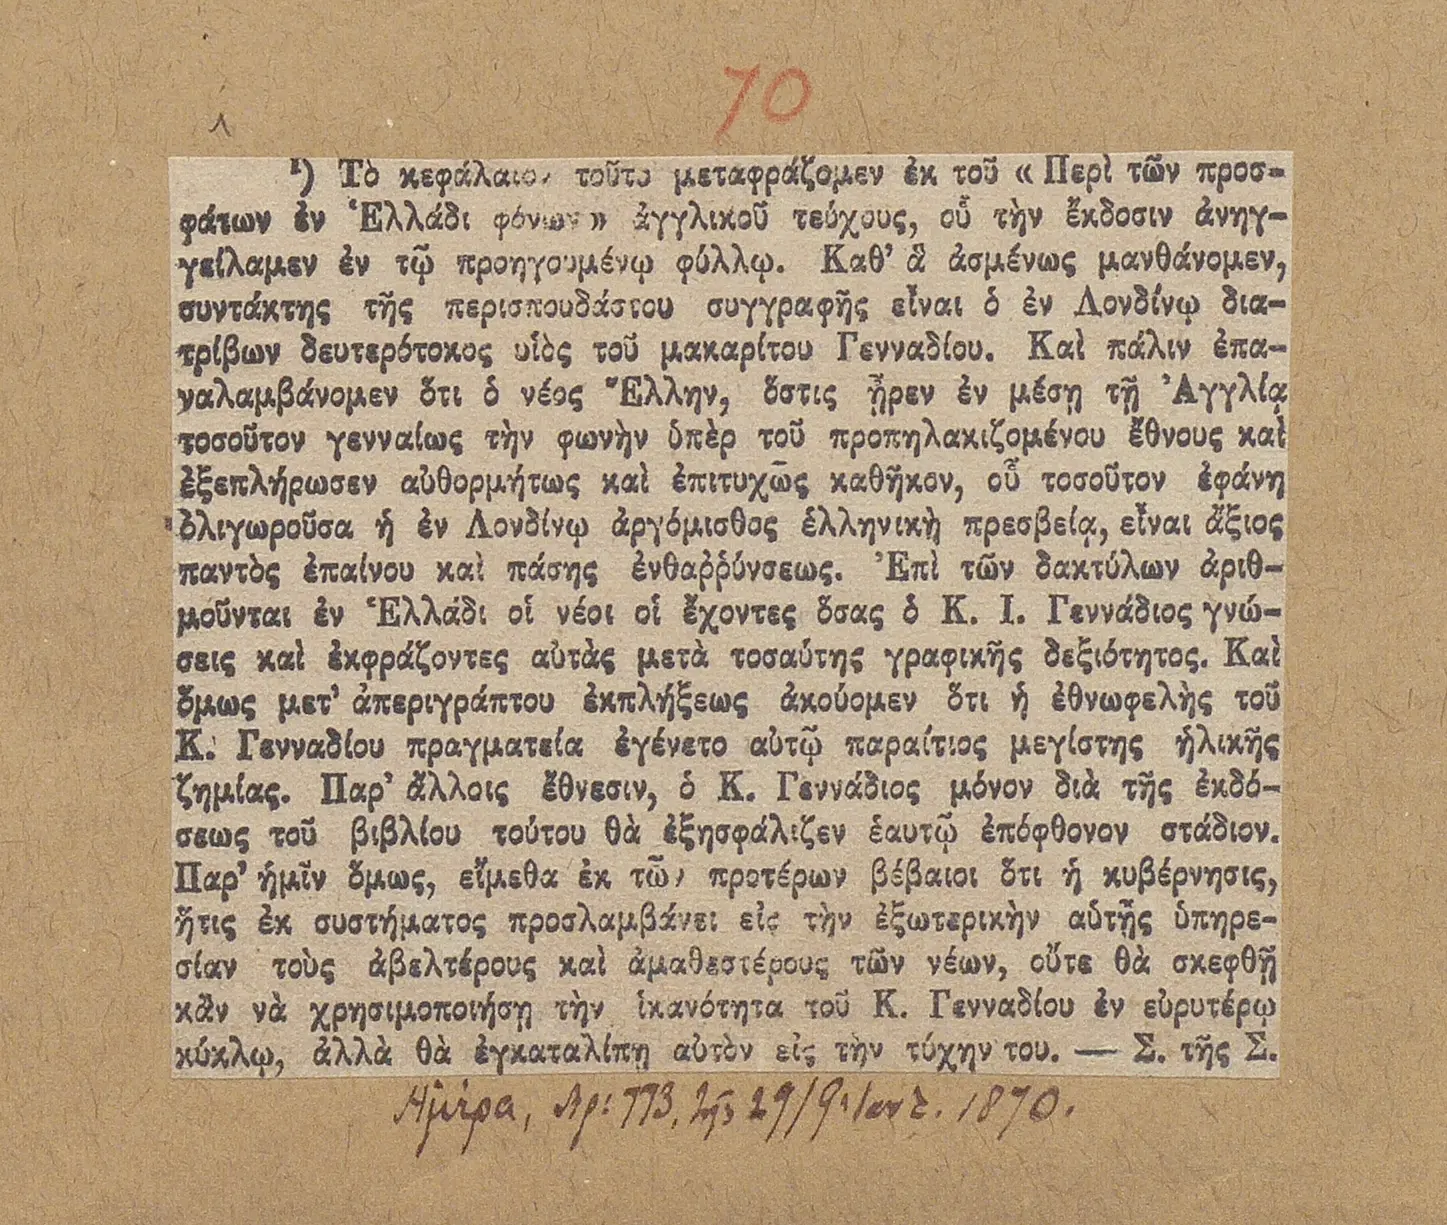 70
¹) Τὸ κεφάλαιον τοῦτο μεταφράζομεν ἐκ τοῦ « Περὶ τῶν προσ-
φάτων ἐν Ἑλλάδι φόνων » ἀγγλικοῦ τεύχους, οὗ τὴν ἔκδοσιν ἀνηγ-
γείλαμεν ἐν τῷ προηγουμένῳ φύλλῳ. Καθ’ ἃ ἀσμένως μανθάνομεν,
συντάκτης τῆς περισπουδάστου συγγραφῆς εἶναι ὁ ἐν Λονδίνῳ δια-
τρίβων δευτερότοκος υἱὸς τοῦ μακαρίτου Γενναδίου. Καὶ πάλιν ἐπα-
ναλαμβάνομεν ὅτι ὁ νέος Ἕλλην, ὅστις ᾖρεν ἐν μέσῃ τῇ Ἀγγλίᾳ
τοσοῦτον γενναίως τὴν φωνὴν ὑπὲρ τοῦ προπηλακιζομένου ἔθνους καὶ
ἐξεπλήρωσεν αὐθορμήτως καὶ ἐπιτυχῶς καθῆκον, οὗ τοσοῦτον ἐφάνη
ὀλιγωροῦσα ἡ ἐν Λονδίνῳ ἀργόμισθος ἑλληνικὴ πρεσβεία, εἶναι ἄξιος
παντὸς ἐπαίνου καὶ πάσης ἐνθαῤῥύνσεως. Ἐπὶ τῶν δακτύλων ἀριθ-
μοῦνται ἐν Ἑλλάδι οἱ νέοι οἱ ἔχοντες ὅσας ὁ Κ. Ι. Γεννάδιος γνώ-
σεις καὶ ἐκφράζοντες αὐτὰς μετὰ τοσαύτης γραφικῆς δεξιότητος. Καὶ
ὅμως μετ’ ἀπεριγράπτου ἐκπλήξεως ἀκούομεν ὅτι ἡ ἐθνωφελὴς τοῦ
Κ. Γενναδίου πραγματεία ἐγένετο αὐτῷ παραίτιος μεγίστης ἡλικῆς
ζημίας. Παρ’ ἄλλοις ἔθνεσιν, ὁ Κ. Γεννάδιος μόνον διὰ τῆς ἐκδό-
σεως τοῦ βιβλίου τούτου θὰ ἐξησφάλιζεν ἑαυτῷ ἐπόφθονον στάδιον.
Παρ’ ἡμῖν ὅμως, εἴμεθα ἐκ τῶν προτέρων βέβαιοι ὅτι ἡ κυβέρνησις,
ἥτις ἐκ συστήματος προσλαμβάνει εἰς τὴν ἐξωτερικὴν αὑτῆς ὑπηρε-
σίαν τοὺς ἀβελτέρους καὶ ἀμαθεστέρους τῶν νέων, οὔτε θὰ σκεφθῇ
κἂν νὰ χρησιμοποιήσῃ τὴν ἱκανότητα τοῦ Κ. Γενναδίου ἐν εὐρυτέρῳ
κύκλῳ, ἀλλὰ θὰ ἐγκαταλίπῃ αὐτὸν εἰς τὴν τύχην του. — Σ. τῆς Σ.
Ἡμέρα, Ἀρ: 773, τῆς 29/9 1870.